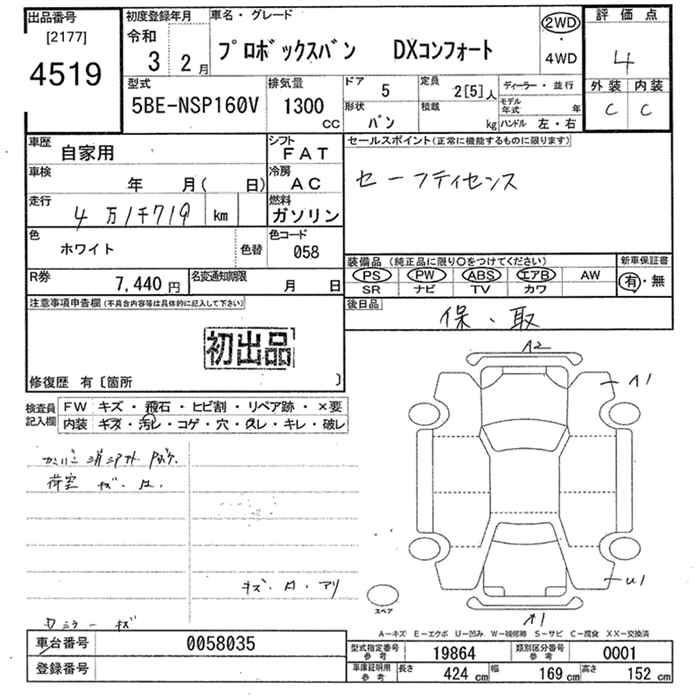 出品番号 初度登録年月 車名・グレード 2WD 評価点
[2177] 令和 プロボックスバン DXコンフォート ・ 4
4519 3 2月 4WD
型式 排気量 ドア 5 定員 2[5]人 ディーラー・並行 外装 内装
5BE-NSP160V 1300 CC 形状 バン 積載 kg モデル年式 年 C C
ハンドル 左・右
車歴 自家用 シフト FAT セールスポイント(正常に機能するものに限ります)
車検 年 月( 日) 冷房 AC セーフティセンス
走行 4万1千719 km 燃料 ガソリン
色 ホワイト 色替 色コード 058
装備品 (純正品に限り○をつけてください) 新車保証書
R券 7,440円 名変通知期限 月 日 PS PW ABS エアB AW 有・無
SR ナビ TV カワ
注意事項申告欄(不具合内容等は具体的に記入して下さい) 後日品 保・取
初出品
修復歴 有〔箇所 〕
A2
A1
検査員記入欄 FW キズ・飛石・ヒビ割・リペア跡・×要
内装 キズ・汚レ・コゲ・穴・スレ・キレ・破レ
荷室 キズ・
キズ・A・アリ
U1
スペア
A1
ミラー キズ
A-キズ E-エクボ U-凹み W-補修跡 S-サビ C-腐食 XX-交換済
車台番号 0058035 型式指定番号 参考 19864 類別区分番号 参考 0001
登録番号 車庫証明用 参考 長さ 424 cm 幅 169 cm 高さ 152 cm